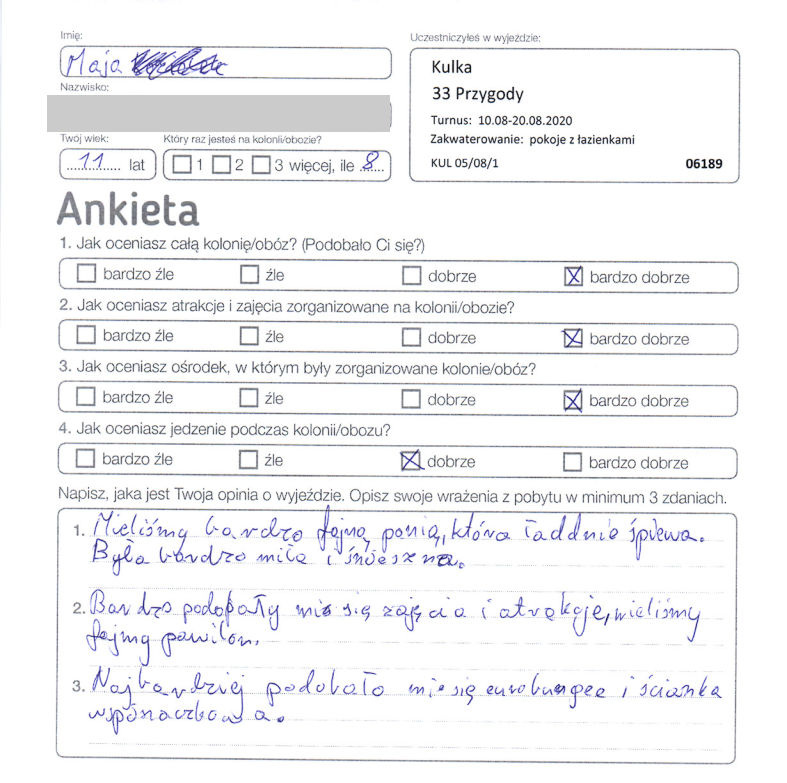 Imię:
Maja
Nazwisko:
Twój wiek:
11 lat
Który raz jesteś na kolonii/obozie?
1 2 3 więcej, ile 8
Uczestniczyłeś w wyjeździe:
Kulka
33 Przygody
Turnus: 10.08-20.08.2020
Zakwaterowanie: pokoje z łazienkami
KUL 05/08/1 06189
Ankieta
1. Jak oceniasz całą kolonię/obóz? (Podobało Ci się?)
bardzo źle źle dobrze bardzo dobrze
2. Jak oceniasz atrakcje i zajęcia zorganizowane na kolonii/obozie?
bardzo źle źle dobrze bardzo dobrze
3. Jak oceniasz ośrodek, w którym były zorganizowane kolonie/obóz?
bardzo źle źle dobrze bardzo dobrze
4. Jak oceniasz jedzenie podczas kolonii/obozu?
bardzo źle źle dobrze bardzo dobrze
Napisz, jaka jest Twoja opinia o wyjeździe. Opisz swoje wrażenia z pobytu w minimum 3 zdaniach.
1. Mieliśmy bardzo fajną panią, która ładdnie śpiewa.
Była bardzo miła i śmieszna.
2. Bardzo podobały mi się zajęcia i atrakcje, mieliśmy
fajny pawilon.
3. Najbardziej podobało mie się eurobungee i ścianka
wspinaczkowa.